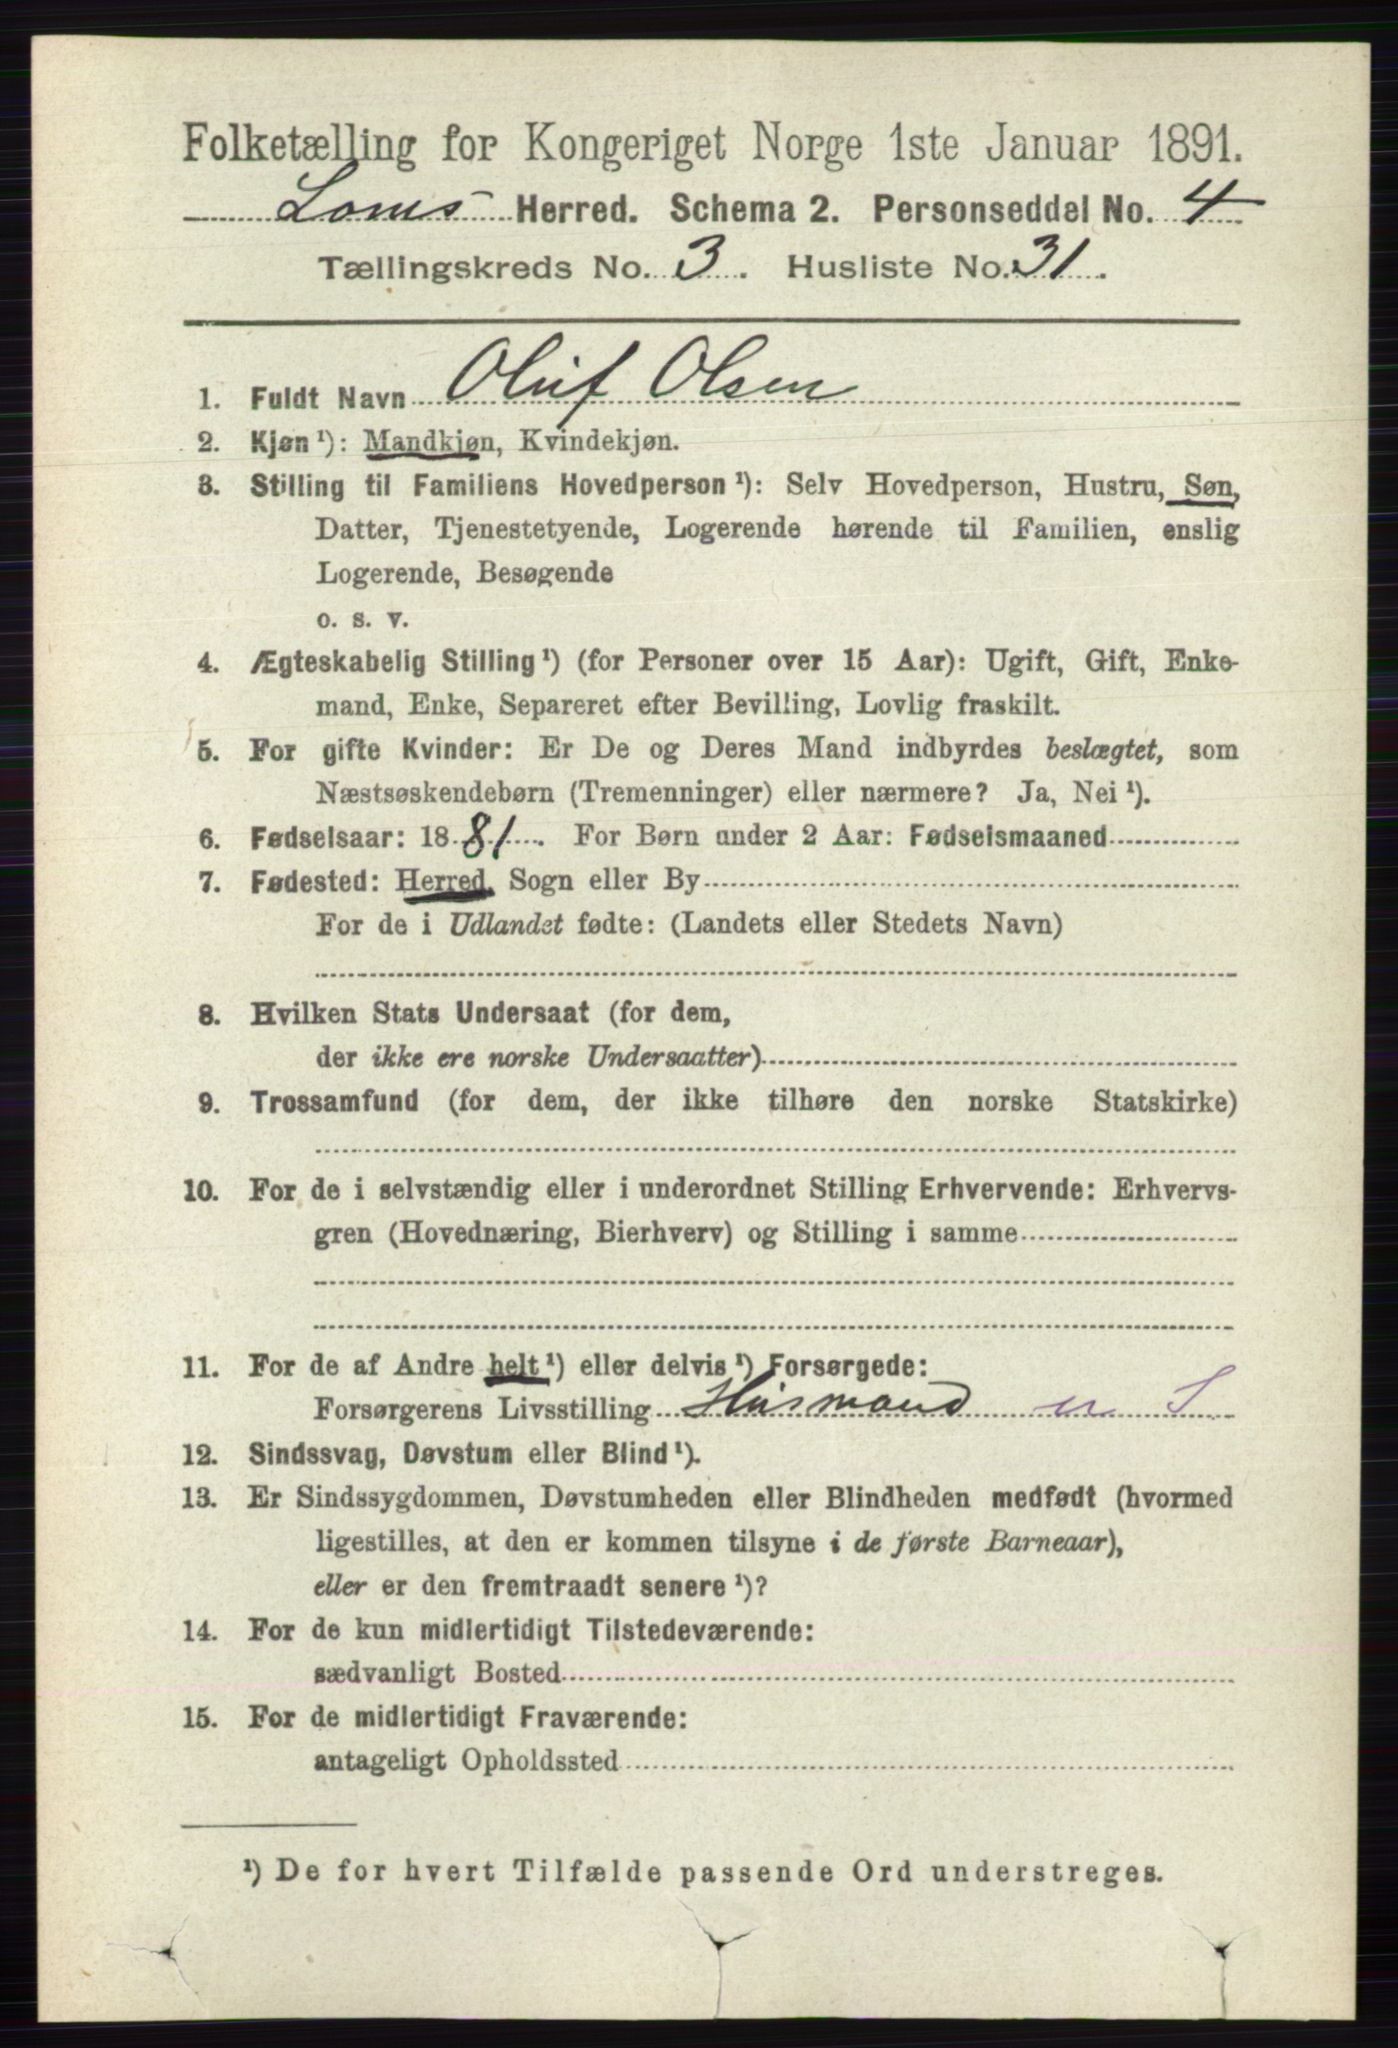 Folketælling for Kongeriget Norge 1ste Januar 1891.
Loms Herred. Schema 2. Personseddel No. 4
Tællingskreds No. 3. Husliste No. 31.
1. Fuldt Navn Oluf Olsen
2. Kjøn ¹): Mandkjøn, Kvindekjøn.
3. Stilling til Familiens Hovedperson ¹): Selv Hovedperson, Hustru, Søn,
Datter, Tjenestetyende, Logerende hørende til Familien, enslig
Logerende, Besøgende
o. s. v.
4. Ægteskabelig Stilling ¹) (for Personer over 15 Aar): Ugift, Gift, Enke-
mand, Enke, Separeret efter Bevilling, Lovlig fraskilt.
5. For gifte Kvinder: Er De og Deres Mand indbyrdes beslægtet, som
Næstsøskendebørn (Tremenninger) eller nærmere? Ja, Nei ¹).
6. Fødselsaar: 1881. For Børn under 2 Aar: Fødselsmaaned
7. Fødested: Herred, Sogn eller By
For de i Udlandet fødte: (Landets eller Stedets Navn)
8. Hvilken Stats Undersaat (for dem,
der ikke ere norske Undersaatter)
9. Trossamfund (for dem, der ikke tilhøre den norske Statskirke)
10. For de i selvstændig eller i underordnet Stilling Erhvervende: Erhvervs-
gren (Hovednæring, Bierhverv) og Stilling i samme
11. For de af Andre helt ¹) eller delvis ¹) Forsørgede:
Forsørgerens Livsstilling Husmand S
12. Sindssvag, Døvstum eller Blind ¹).
13. Er Sindssygdommen, Døvstumheden eller Blindheden medfødt (hvormed
ligestilles, at den er kommen tilsyne i de første Barneaar),
eller er den fremtraadt senere ¹)?
14. For de kun midlertidigt Tilstedeværende:
sædvanligt Bosted
15. For de midlertidigt Fraværende:
antageligt Opholdssted
¹) De for hvert Tilfælde passende Ord understreges.